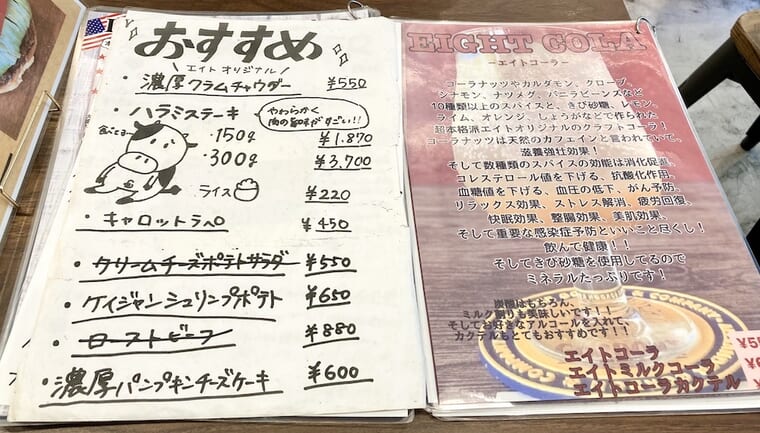 おすすめ
エイトオリジナル
・濃厚クラムチャウダー ¥550
・ハラミステーキ
やわらかく
肉の旨味がすごい!!
食べてみョー
・150g ¥1,870
・300g ¥3,700
ライス ¥220
・キャロットラペ ¥450
・クリームチーズポテトサラダ ¥550
・ケイジャンシュリンプポテト ¥650
・ローストビーフ ¥880
・濃厚パンプキンチーズケーキ ¥600
EIGHT COLA
-エイトコーラ-
コーラナッツやカルダモン、クローブ、
シナモン、ナツメグ、バニラビーンズなど
10種類以上のスパイスと、きび砂糖、レモン、
ライム、オレンジ、しょうがなどで作られた
超本格派エイトオリジナルのクラフトコーラ！
コーラナッツは天然のカフェインと言われていて、
滋養強壮効果！
そして数種類のスパイスの効能は消化促進、
コレステロール値を下げる、抗酸化作用、
血糖値を下げる、血圧の低下、がん予防、
リラックス効果、ストレス解消、疲労回復、
快眠効果、整腸効果、美肌効果、
そして重要な感染症予防といいこと尽くし！
飲んで健康！！
そしてきび砂糖を使用してるので
ミネラルたっぷりです！
炭酸はもちろん、
ミルク割りも美味しいです！！
そしてお好きなアルコールを入れて、
カクテルもとてもおすすめです！！
エイトコーラ
エイトミルクコーラ
エイトコーラカクテル